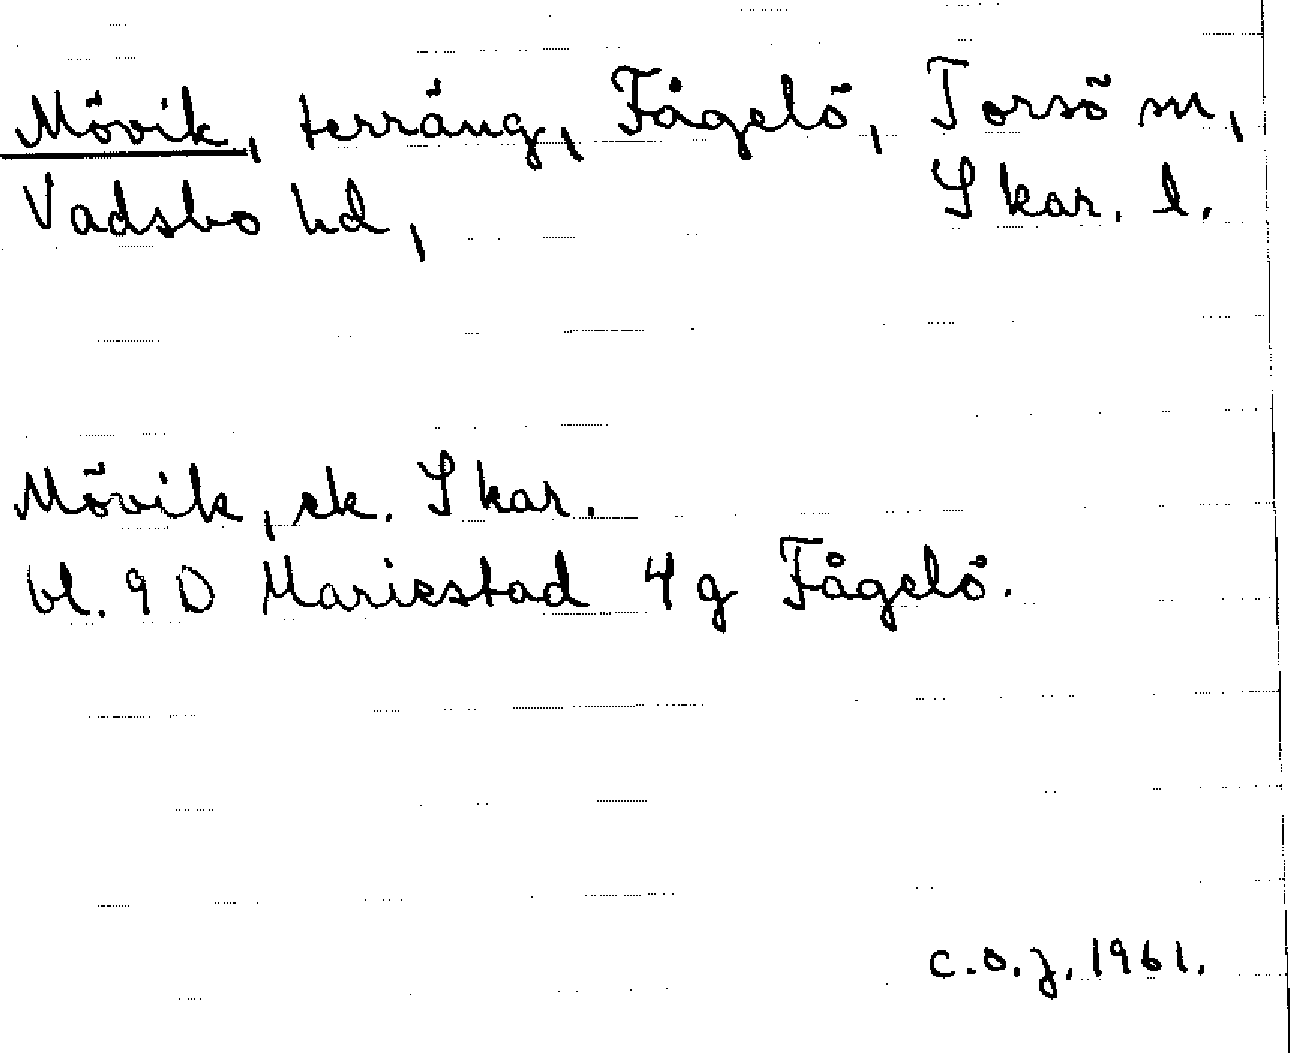 Mövik, terräng, Fågelö, Torsö sn,
Vadsbo hd, Skar. l.
Mövik, ek. Skar.
bl. 9 D Mariestad 4 g Fågelö.
C.O.J. 1961.